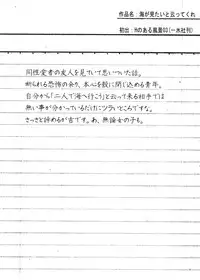 作品名：海が見たいと云ってくれ
初出：Hのある風景03（一水社刊）
同性愛者の友人を見ていて思いついた話。
断られる恐怖の余り、本心を殻に閉じ込める青年。
自分から「二人で海へ行こう」と云って来る相手では
無い事が分かっているだけにツラいところですな。
さっさと諦めるが吉です。あ、無論女の子も。